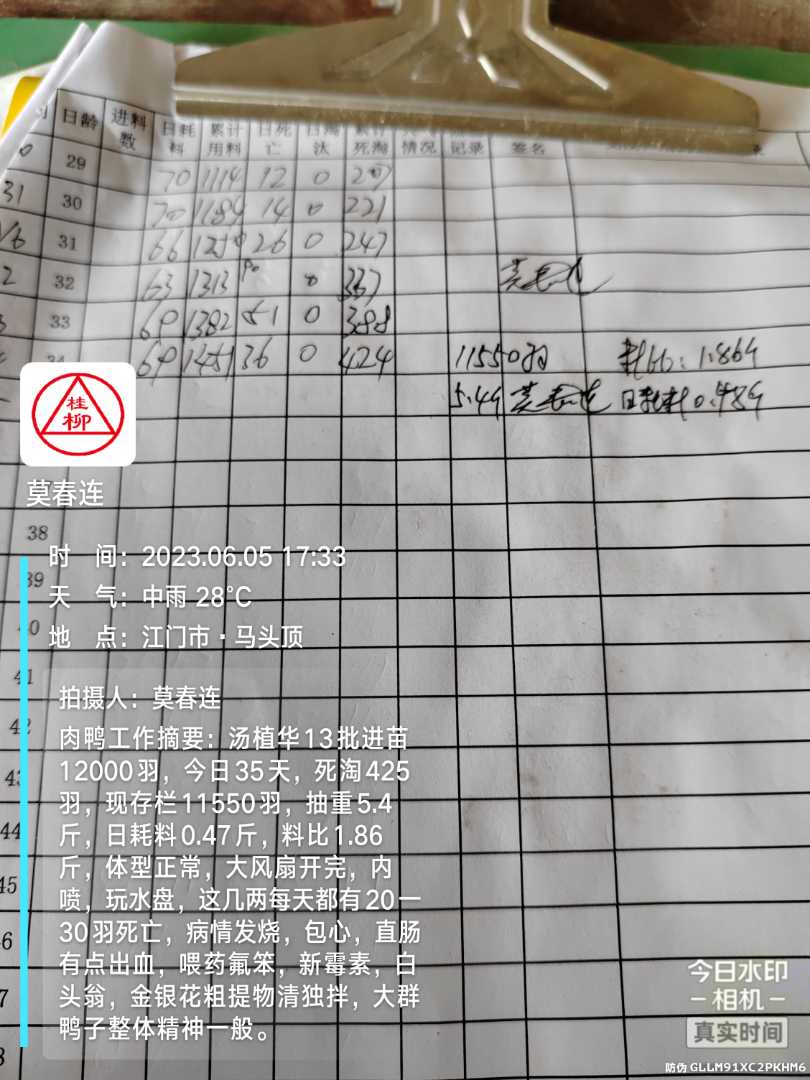 日龄 进料数 日耗料 累计用料 日死亡 日淘汰 累计死淘 情况 记录 签名
29 70 1114 12 0 207
31 30 70 1184 14 0 221
31 66 1250 26 0 247
32 63 1313 90 0 337
33 69 1382 51 0 388
69 1451 36 0 424 11550羽 耗比:1.86斤
5.4斤 莫春连 日耗料0.48斤
桂柳
莫春连
38
39
40
41
42
43
44
45
46
47
48
时 间:2023.06.05 17:33
天 气:中雨 28℃
地 点:江门市·马头顶
拍摄人:莫春连
肉鸭工作摘要:汤植华13批进苗
12000羽,今日35天,死淘425
羽,现存栏11550羽,抽重5.4
斤,日耗料0.47斤,料比1.86
斤,体型正常,大风扇开完,内
喷,玩水盘,这几两每天都有20一
30羽死亡,病情发烧,包心,直肠
有点出血,喂药氟笨,新霉素,白
头翁,金银花粗提物清独拌,大群
鸭子整体精神一般。
今日水印
相机
真实时间
防伪 GLLM91XC2PKHM6